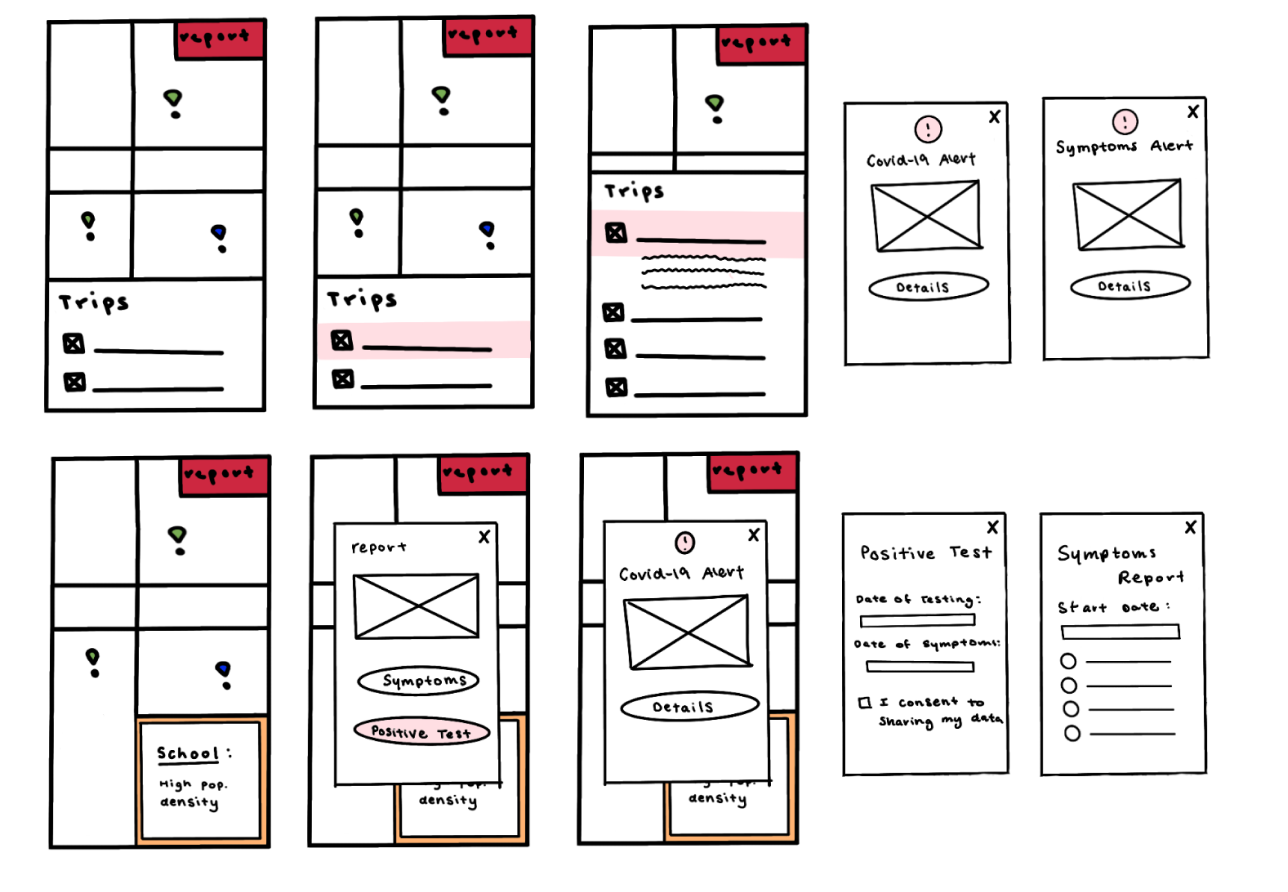 report
Trips
report
Trips
report
Trips
X
!
Covid-19 Alert
Details
X
!
Symptoms Alert
Details
report
School:
High pop.
density
report
X
report
Symptoms
Positive Test
density
report
X
!
Covid-19 Alert
Details
density
X
Positive Test
Date of Testing:
Date of Symptoms:
I consent to
sharing my data
X
Symptoms
Report
Start Date: